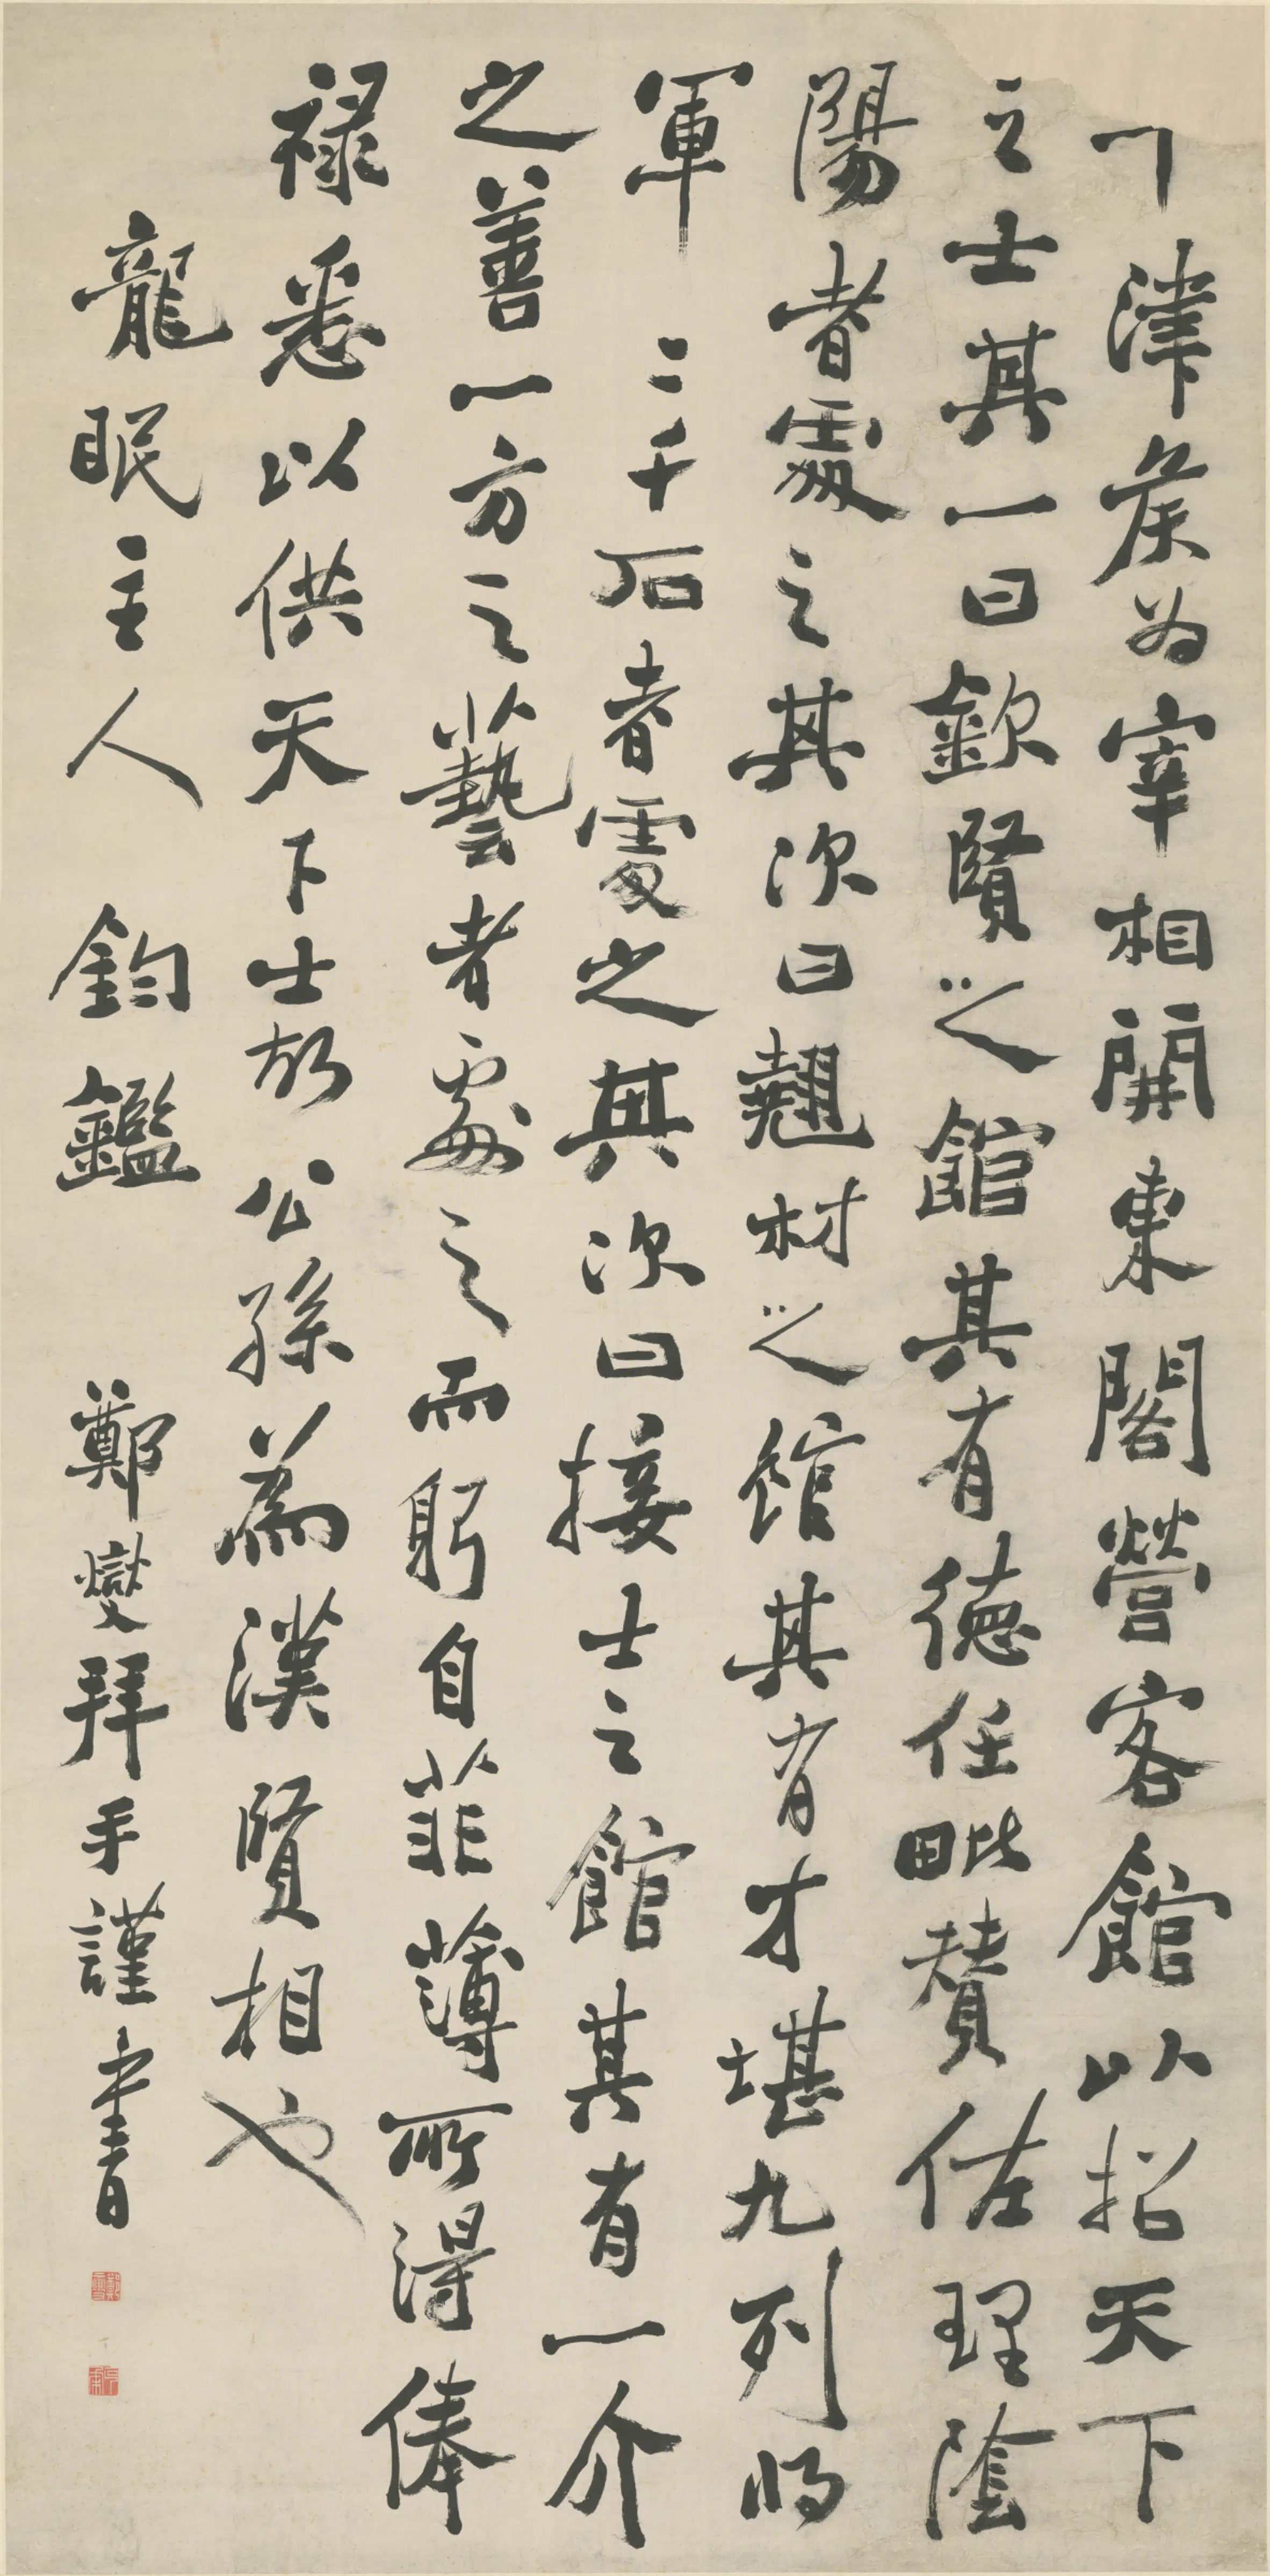 津侯为宰相開東閣營客館以招天下
之士其一曰欽賢之館其有德任毗贊佐理陰
陽者處之其次曰翹材之館其有才堪九列將
軍二千石者處之其次曰接士之館其有一介
之善一方之藝者處之而躬自菲薄所得俸
祿悉以供天下士故公孫為漢賢相也
龍眠主人 鈞鑑 鄭燮拜手謹書